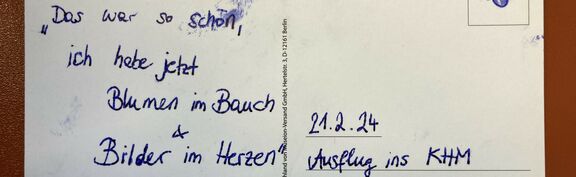 „Das war so schön,
ich habe jetzt
Blumen im Bauch
&
Bilder im Herzen"
Versand GmbH, Hertelstr. 3, D-12161 Berlin
21.2.24
Ausflug ins KHM